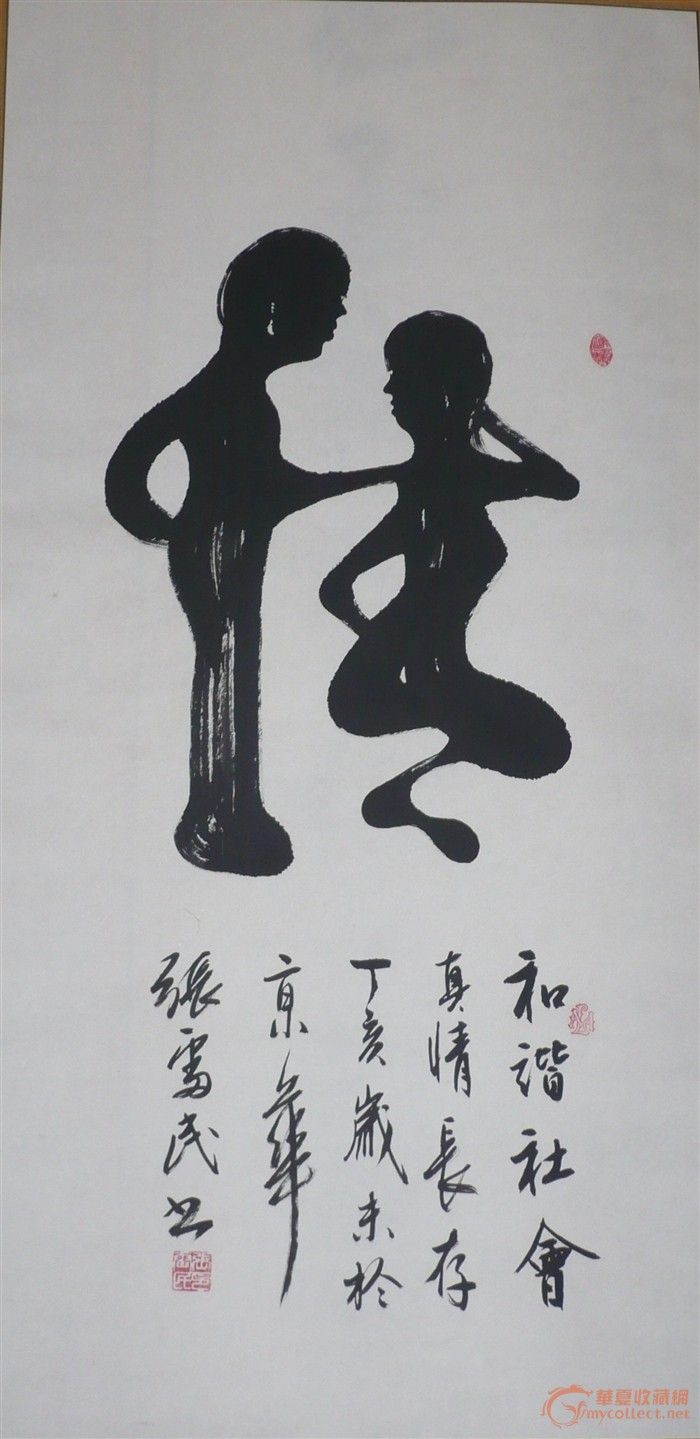 情
和諧社會
真情長存
丁亥歲末於
京華
張雷民书
華夏收藏網
mycollect.net